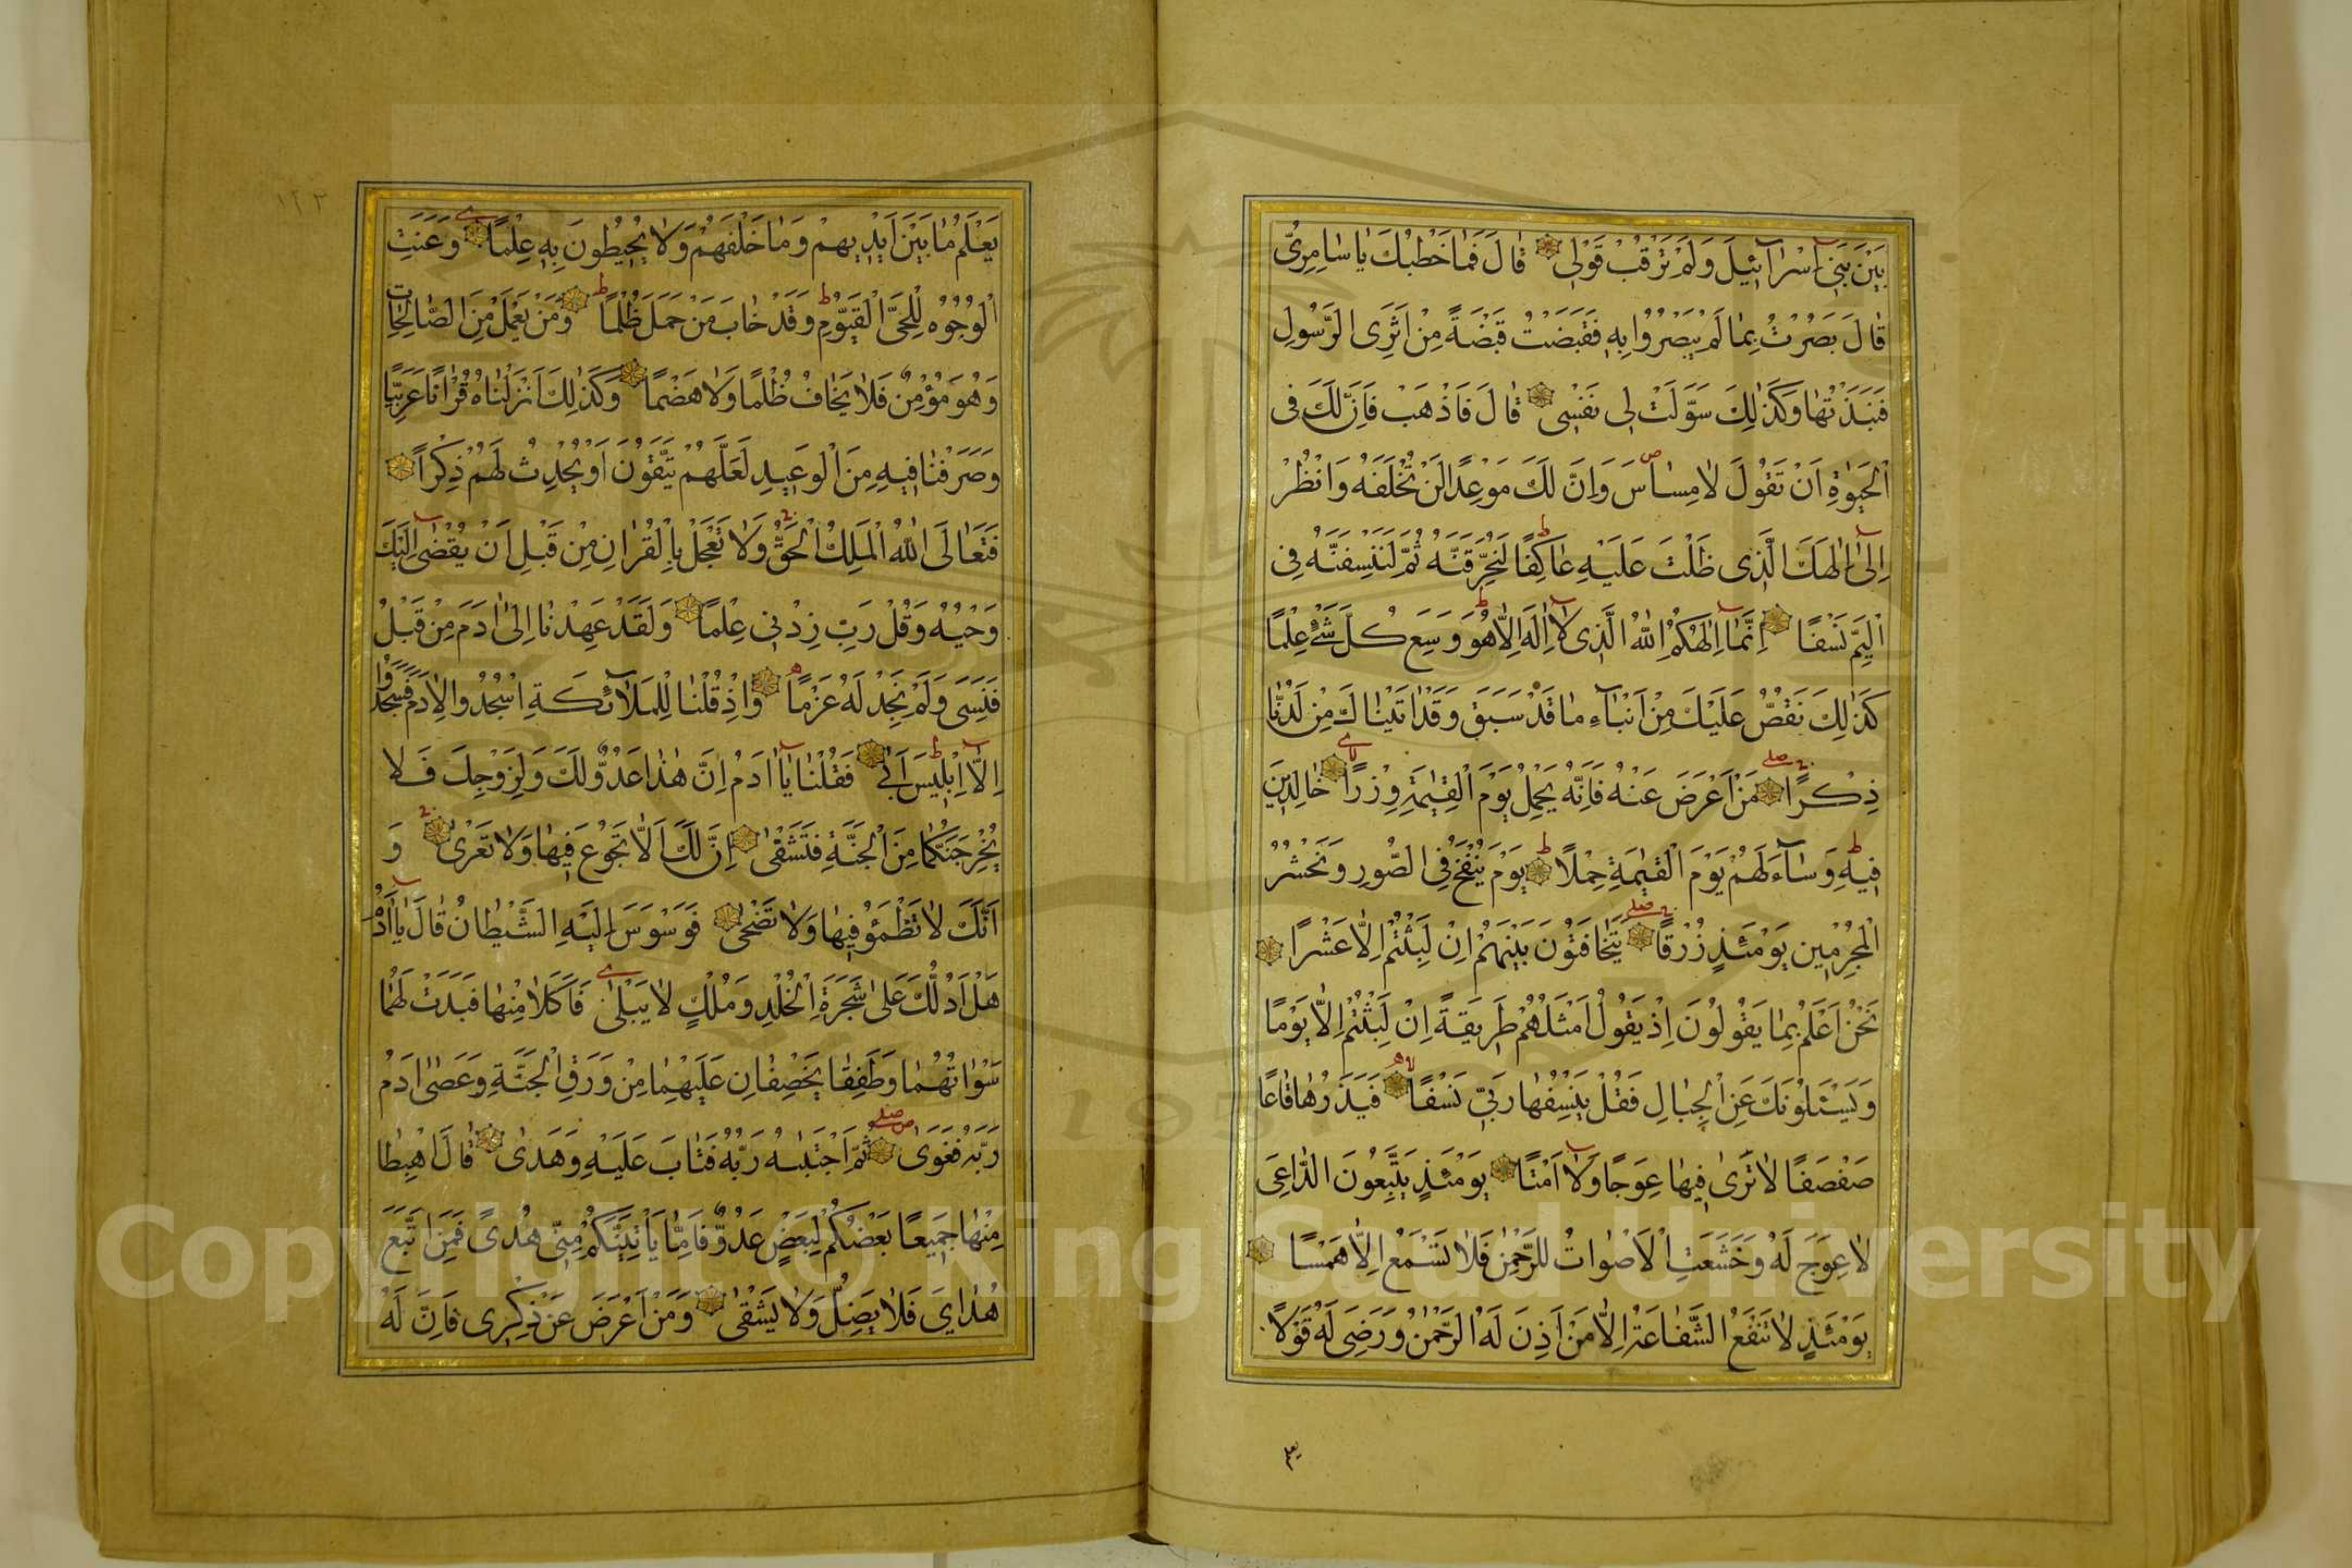 بَيْنَ بَنِي اِسْرَآئِيلَ وَلَمْ تَرْقُبْ قَوْلِى قَالَ فَمَا خَطْبُكَ يَا سَامِرِىُّ
قَالَ بَصُرْتُ بِمَا لَمْ يَبْصُرُوا بِهِ فَقَبَضْتُ قَبْضَةً مِنْ اَثَرِى الرَّسُولِ
فَنَبَذْتُهَا وَكَذٰلِكَ سَوَّلَتْ لِى نَفْسِى قَالَ فَاذْهَبْ فَاِنَّ لَكَ فِى
الْحَيٰوةِ اَنْ تَقُولَ لَا مِسَاسَ وَاِنَّ لَكَ مَوْعِدًا لَنْ تُخْلَفَهُ وَانْظُرْ
اِلٰٓى اِلٰهِكَ الَّذِى ظَلْتَ عَلَيْهِ عَاكِفًا لَنُحَرِّقَنَّهُ ثُمَّ لَنَنْسِفَنَّهُ فِى
الْيَمِّ نَسْفًا اِنَّمَآ اِلٰهُكُمُ اللّٰهُ الَّذِى لَآ اِلٰهَ اِلَّا هُوَ وَسِعَ كُلَّ شَىْءٍ عِلْمًا
كَذٰلِكَ نَقُصُّ عَلَيْكَ مِنْ اَنْبَآءِ مَا قَدْ سَبَقَ وَقَدْ اٰتَيْنَاكَ مِنْ لَدُنَّا
ذِكْرًا مَنْ اَعْرَضَ عَنْهُ فَاِنَّهُ يَحْمِلُ يَوْمَ الْقِيٰمَةِ وِزْرًا خَالِدِينَ
فِيهِ وَسَآءَ لَهُمْ يَوْمَ الْقِيٰمَةِ حِمْلًا يَوْمَ يُنْفَخُ فِى الصُّورِ وَنَحْشُرُ
الْمُجْرِمِينَ يَوْمَئِذٍ زُرْقًا يَتَخَافَتُونَ بَيْنَهُمْ اِنْ لَبِثْتُمْ اِلَّا عَشْرًا
نَحْنُ اَعْلَمُ بِمَا يَقُولُونَ اِذْ يَقُولُ اَمْثَلُهُمْ طَرِيقَةً اِنْ لَبِثْتُمْ اِلَّا يَوْمًا
وَيَسْئَلُونَكَ عَنِ الْجِبَالِ فَقُلْ يَنْسِفُهَا رَبِّى نَسْفًا فَيَذَرُهَا قَاعًا
صَفْصَفًا لَا تَرٰى فِيهَا عِوَجًا وَلَآ اَمْتًا يَوْمَئِذٍ يَتَّبِعُونَ الدَّاعِىَ
لَا عِوَجَ لَهُ وَخَشَعَتِ الْاَصْوَاتُ لِلرَّحْمٰنِ فَلَا تَسْمَعُ اِلَّا هَمْسًا
يَوْمَئِذٍ لَا تَنْفَعُ الشَّفَاعَةُ اِلَّا مَنْ اَذِنَ لَهُ الرَّحْمٰنُ وَرَضِىَ لَهُ قَوْلًا
يعلم
١٢٣
يَعْلَمُ مَا بَيْنَ اَيْدِيهِمْ وَمَا خَلْفَهُمْ وَلَا يُحِيطُونَ بِهِ عِلْمًا وَعَنَتِ
الْوُجُوهُ لِلْحَىِّ الْقَيُّومِ وَقَدْ خَابَ مَنْ حَمَلَ ظُلْمًا وَمَنْ يَعْمَلْ مِنَ الصَّالِحَاتِ
وَهُوَ مُؤْمِنٌ فَلَا يَخَافُ ظُلْمًا وَلَا هَضْمًا وَكَذٰلِكَ اَنْزَلْنَاهُ قُرْاٰنًا عَرَبِيًّا
وَصَرَّفْنَا فِيهِ مِنَ الْوَعِيدِ لَعَلَّهُمْ يَتَّقُونَ اَوْ يُحْدِثُ لَهُمْ ذِكْرًا
فَتَعَالَى اللّٰهُ الْمَلِكُ الْحَقُّ وَلَا تَعْجَلْ بِالْقُرْاٰنِ مِنْ قَبْلِ اَنْ يُقْضٰٓى اِلَيْكَ
وَحْيُهُ وَقُلْ رَبِّ زِدْنِى عِلْمًا وَلَقَدْ عَهِدْنَا اِلٰى اٰدَمَ مِنْ قَبْلُ
فَنَسِىَ وَلَمْ نَجِدْ لَهُ عَزْمًا وَاِذْ قُلْنَا لِلْمَلَآئِكَةِ اسْجُدُوا لِاٰدَمَ فَسَجَدُوا
اِلَّآ اِبْلِيسَ اَبٰى فَقُلْنَا يَآ اٰدَمُ اِنَّ هٰذَا عَدُوٌّ لَكَ وَلِزَوْجِكَ فَلَا
يُخْرِجَنَّكُمَا مِنَ الْجَنَّةِ فَتَشْقٰى اِنَّ لَكَ اَلَّا تَجُوعَ فِيهَا وَلَا تَعْرٰى وَ
اَنَّكَ لَا تَظْمَؤُ فِيهَا وَلَا تَضْحٰى فَوَسْوَسَ اِلَيْهِ الشَّيْطَانُ قَالَ يَآ اٰدَمُ
هَلْ اَدُلُّكَ عَلٰى شَجَرَةِ الْخُلْدِ وَمُلْكٍ لَا يَبْلٰى فَاَكَلَا مِنْهَا فَبَدَتْ لَهُمَا
سَوْاٰتُهُمَا وَطَفِقَا يَخْصِفَانِ عَلَيْهِمَا مِنْ وَرَقِ الْجَنَّةِ وَعَصٰى اٰدَمُ
رَبَّهُ فَغَوٰى ثُمَّ اجْتَبٰيهُ رَبُّهُ فَتَابَ عَلَيْهِ وَهَدٰى قَالَ اهْبِطَا
مِنْهَا جَمِيعًا بَعْضُكُمْ لِبَعْضٍ عَدُوٌّ فَاِمَّا يَاْتِيَنَّكُمْ مِنِّى هُدًى فَمَنِ اتَّبَعَ
هُدَايَ فَلَا يَضِلُّ وَلَا يَشْقٰى وَمَنْ اَعْرَضَ عَنْ ذِكْرِى فَاِنَّ لَهُ
Copyright © King Saud University